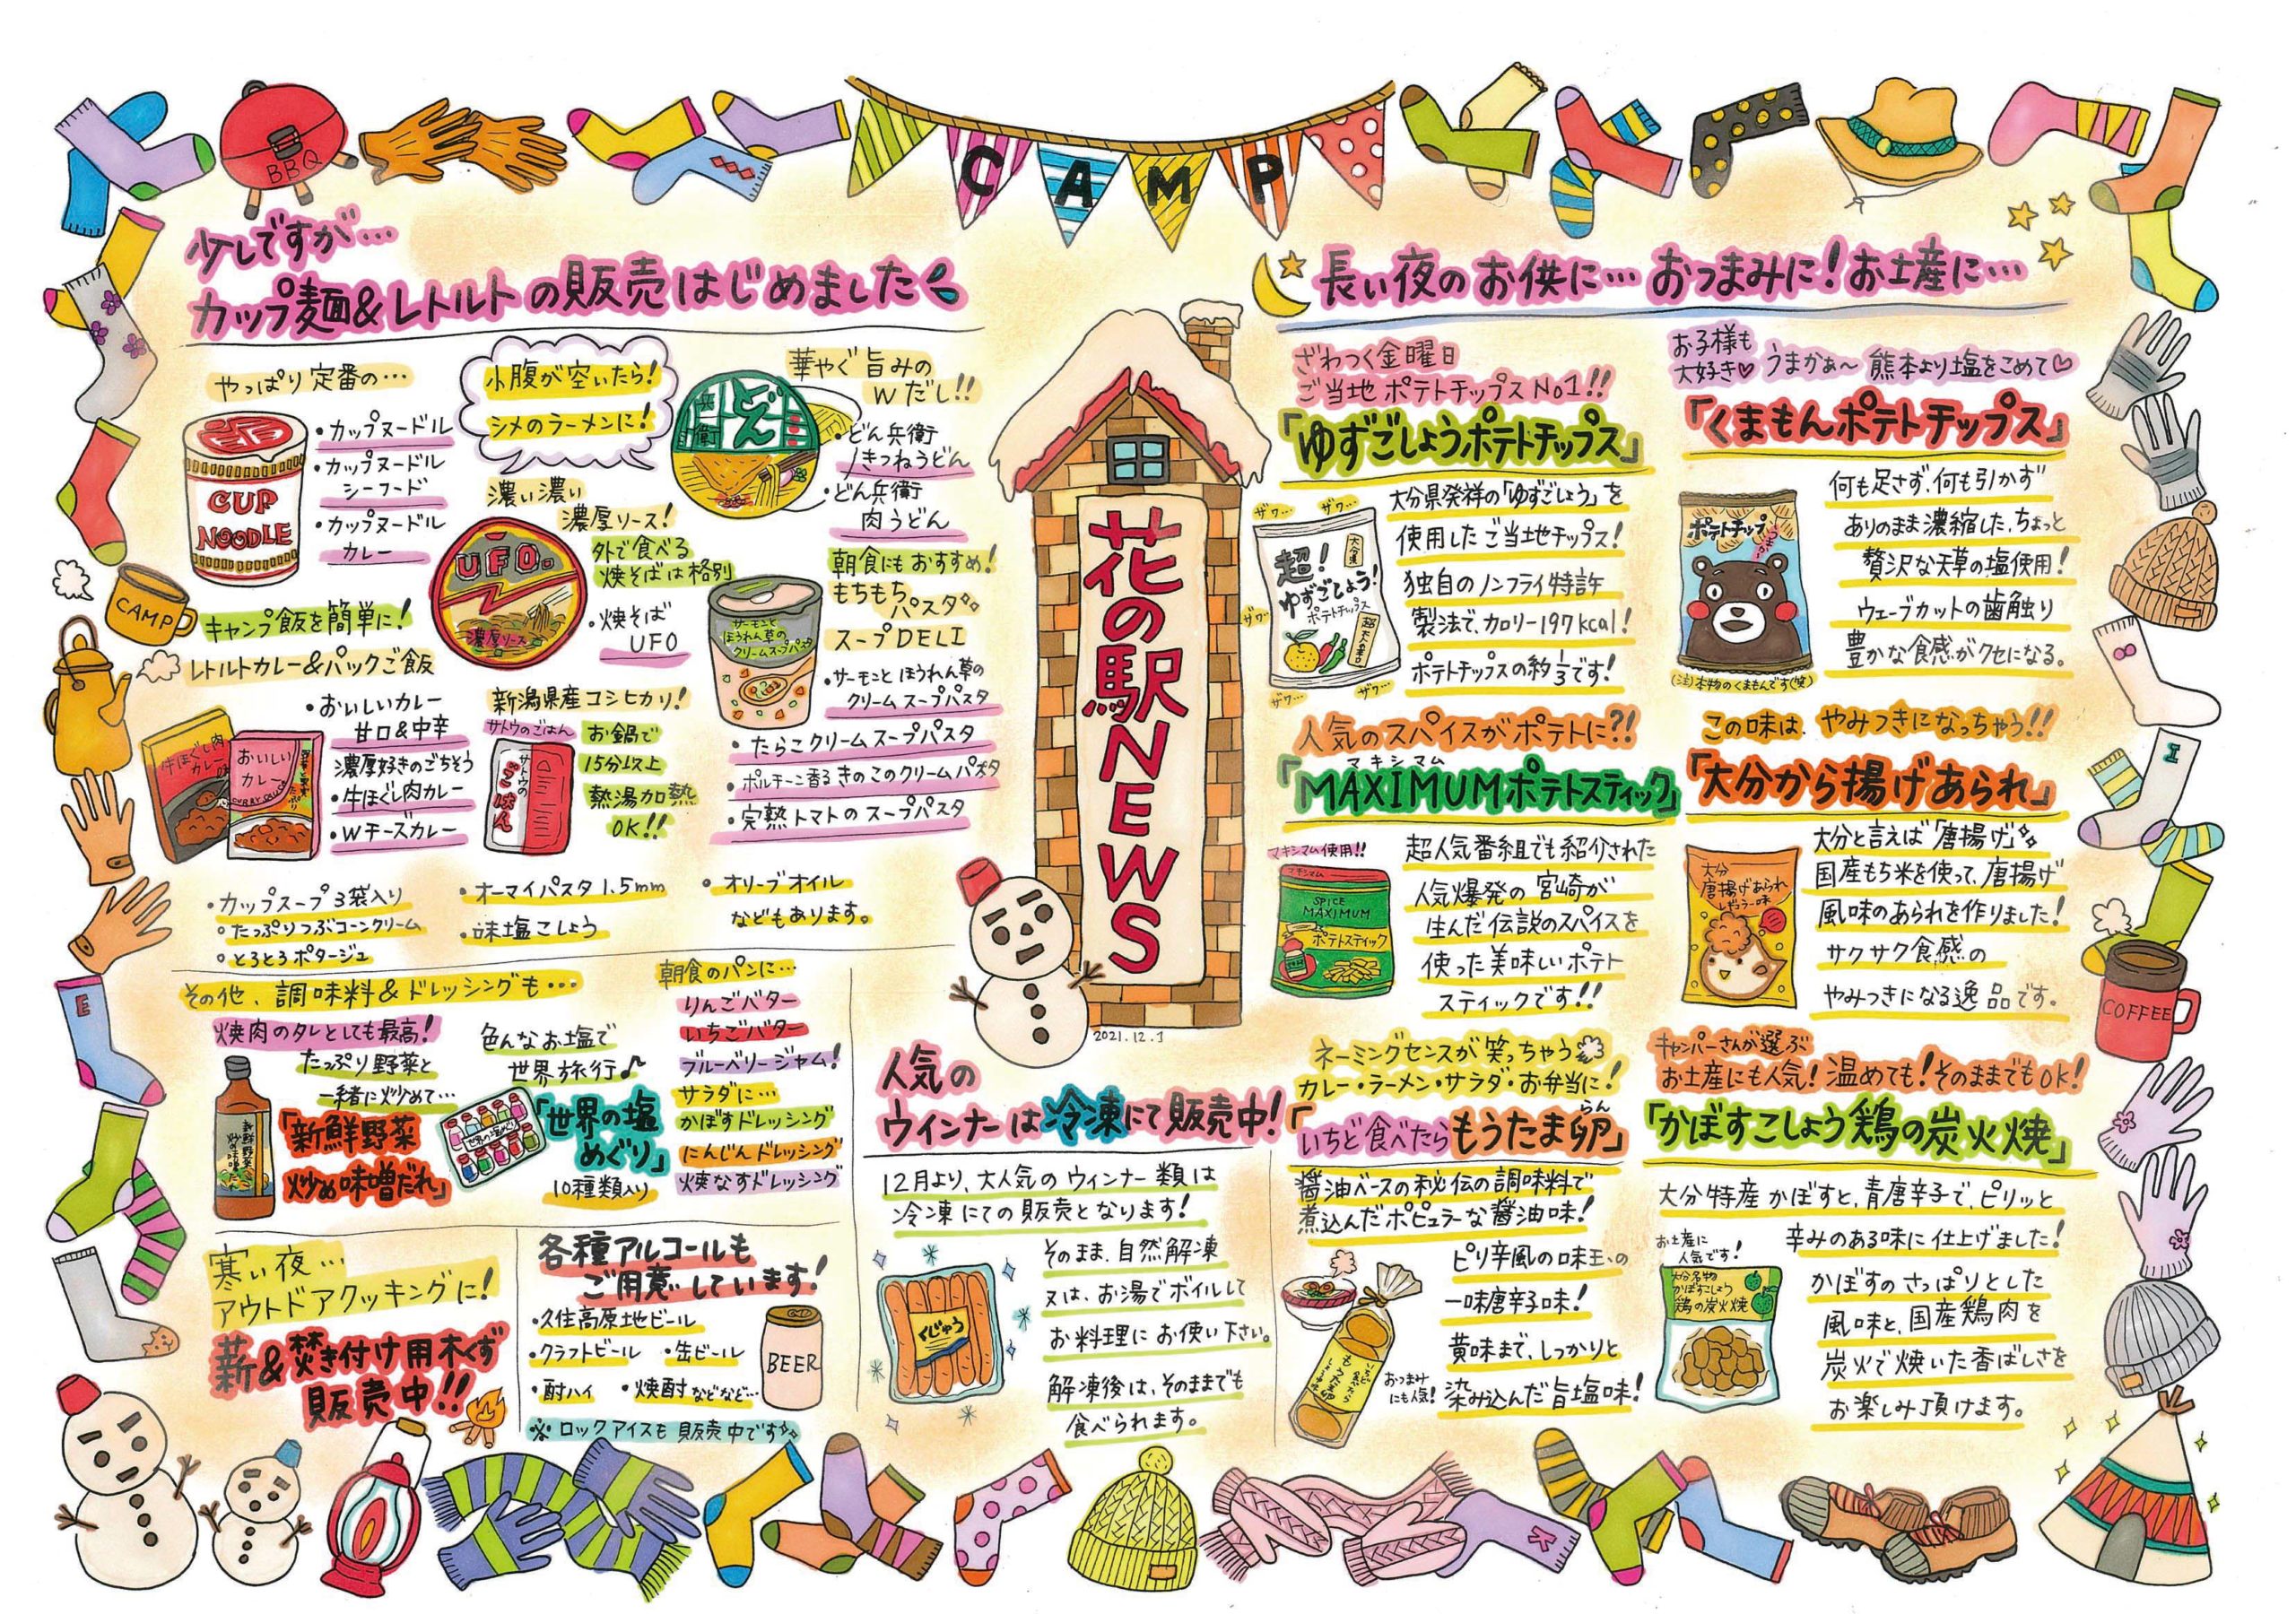 CAMP
BBQ
花の駅NEWS
2021.12.1
少しですが…
カップ麺&レトルトの販売はじめました
やっぱり定番の…
CUP
NOODLE
・カップヌードル
・カップヌードル
シーフード
・カップヌードル
カレー
小腹が空いたら!
シメのラーメンに!
濃い濃い
濃厚ソース!
外で食べる
焼そばは格別
UFO.
濃厚ソース
・焼そば
UFO
華やぐ旨みの
Wだし!!
どん
兵衛
・どん兵衛
きつねうどん
・どん兵衛
肉うどん
朝食にもおすすめ!
もちもち
パスタ
スープDELI
サーモンと
ほうれん草の
クリームスープパスタ
・サーモンとほうれん草の
クリームスープパスタ
・たらこクリームスープパスタ
・ポルチーニ香るきのこのクリームパスタ
・完熟トマトのスープパスタ
CAMP
キャンプ飯を簡単に!
レトルトカレー&パックご飯
牛ほぐし肉
カレー
おいしい
カレー
CURRY SAUCE
・おいしいカレー
甘口&中辛
濃厚好きのごちそう
・牛ほぐし肉カレー
・Wチーズカレー
新潟県産コシヒカリ!
サトウのごはん
サトウの
ごはん
お鍋で
15分以上
熱湯加熱
OK!!
・カップスープ3袋入り
○たっぷりつぶコーンクリーム
○とろとろポタージュ
・オーマイパスタ1.5mm
・味塩こしょう
・オリーブオイル
などもあります。
その他、調味料&ドレッシングも…
焼肉のタレとしても最高!
たっぷり野菜と
一緒に炒めて…
「新鮮野菜
炒め味噌だれ」
色んなお塩で
世界旅行♪
世界の塩めぐり
「世界の塩
めぐり」
10種類入り
朝食のパンに…
りんごバター
いちごバター
ブルーベリージャム!
サラダに…
かぼすドレッシング
にんじんドレッシング
焼なすドレッシング
寒い夜…
アウトドアクッキングに!
薪&焚き付け用木くず
販売中!!
各種アルコールも
ご用意しています!
・久住高原地ビール
・クラフトビール ・缶ビール
・酎ハイ ・焼酎などなど…
BEER
※ロックアイスも販売中です
人気の
ウインナーは冷凍にて販売中!
12月より、大人気のウィンナー類は
冷凍にての販売となります!
くじゅう
そのまま、自然解凍
又は、お湯でボイルして
お料理にお使い下さい。
解凍後は、そのままでも
食べられます。
長い夜のお供に…おつまみに!お土産に…
ざわつく金曜日
ご当地ポテトチップスNo1!!
「ゆずごしょうポテトチップス」
ザワ…
ザワ…
ザワ…
ザワ…
ザワ…
超!
大分発
ゆずごしょう!
ポテトチップス
大分県発祥の「ゆずごしょう」を
使用したご当地チップス!
独自のノンフライ特許
製法で、カロリー197kcal!
ポテトチップスの約⅓です!
お子様も
大好き♡
うまかぁ〜 熊本より塩をこめて♡
「くまもんポテトチップス」
ポテトチップ
(注)本物のくまもんです(笑)
何も足さず、何も引かず
ありのまま濃縮した、ちょっと
贅沢な天草の塩使用!
ウェーブカットの歯触り
豊かな食感がクセになる。
人気のスパイスがポテトに?!
マキシマム
「MAXIMUMポテトスティック」
マキシマム使用!!
マキシマム
SPICE
MAXIMUM
ポテトスティック
超人気番組でも紹介された
人気爆発の宮崎が
生んだ伝説のスパイスを
使った美味しいポテト
スティックです!!
この味は、やみつきになっちゃう!!
「大分から揚げあられ」
大分
唐揚げあられ
レギュラー味
大分と言えば「唐揚げ」
国産もち米を使って、唐揚げ
風味のあられを作りました!
サクサク食感の
やみつきになる逸品です。
COFFEE
ネーミングセンスが笑っちゃう
カレー・ラーメン・サラダ・お弁当に!
らん
「いちど食べたらもうたま卵」
醤油ベースの秘伝の調味料で
煮込んだポピュラーな醤油味!
ピリ辛風の味王の
一味唐辛子味!
黄味まで、しっかりと
染み込んだ旨塩味!
おつまみ
にも人気!
キャンパーさんが選ぶ
お土産にも人気!温めても!そのままでもOK!
「かぼすこしょう鶏の炭火焼」
大分特産かぼすと、青唐辛子で、ピリッと
辛みのある味に仕上げました!
お土産に
人気です!
大分名物
かぼすこしょう
鶏の炭火焼
かぼすのさっぱりとした
風味と、国産鶏肉を
炭火で焼いた香ばしさを
お楽しみ頂けます。
E
I
K